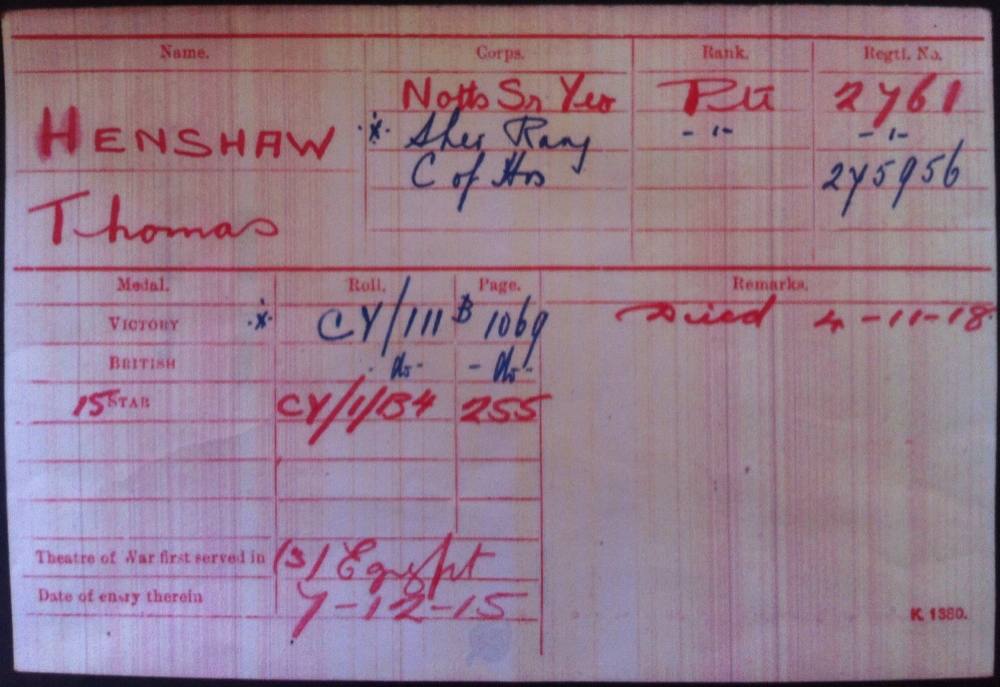 Name. Corps. Rank. Regtl. No.
HENSHAW Notts Sr Yeo Pte 2761
※ Sher Rang -"- -"-
C of Hrs 245956
Thomas
Medal. Roll. Page. Remarks.
VICTORY ※ CY/111 B 1069 Died 4-11-18.
BRITISH -do- -do-
15 STAR CY/1/B4 255
Theatre of War first served in (3) Egypt
Date of entry therein 7-12-15
K. 1380.